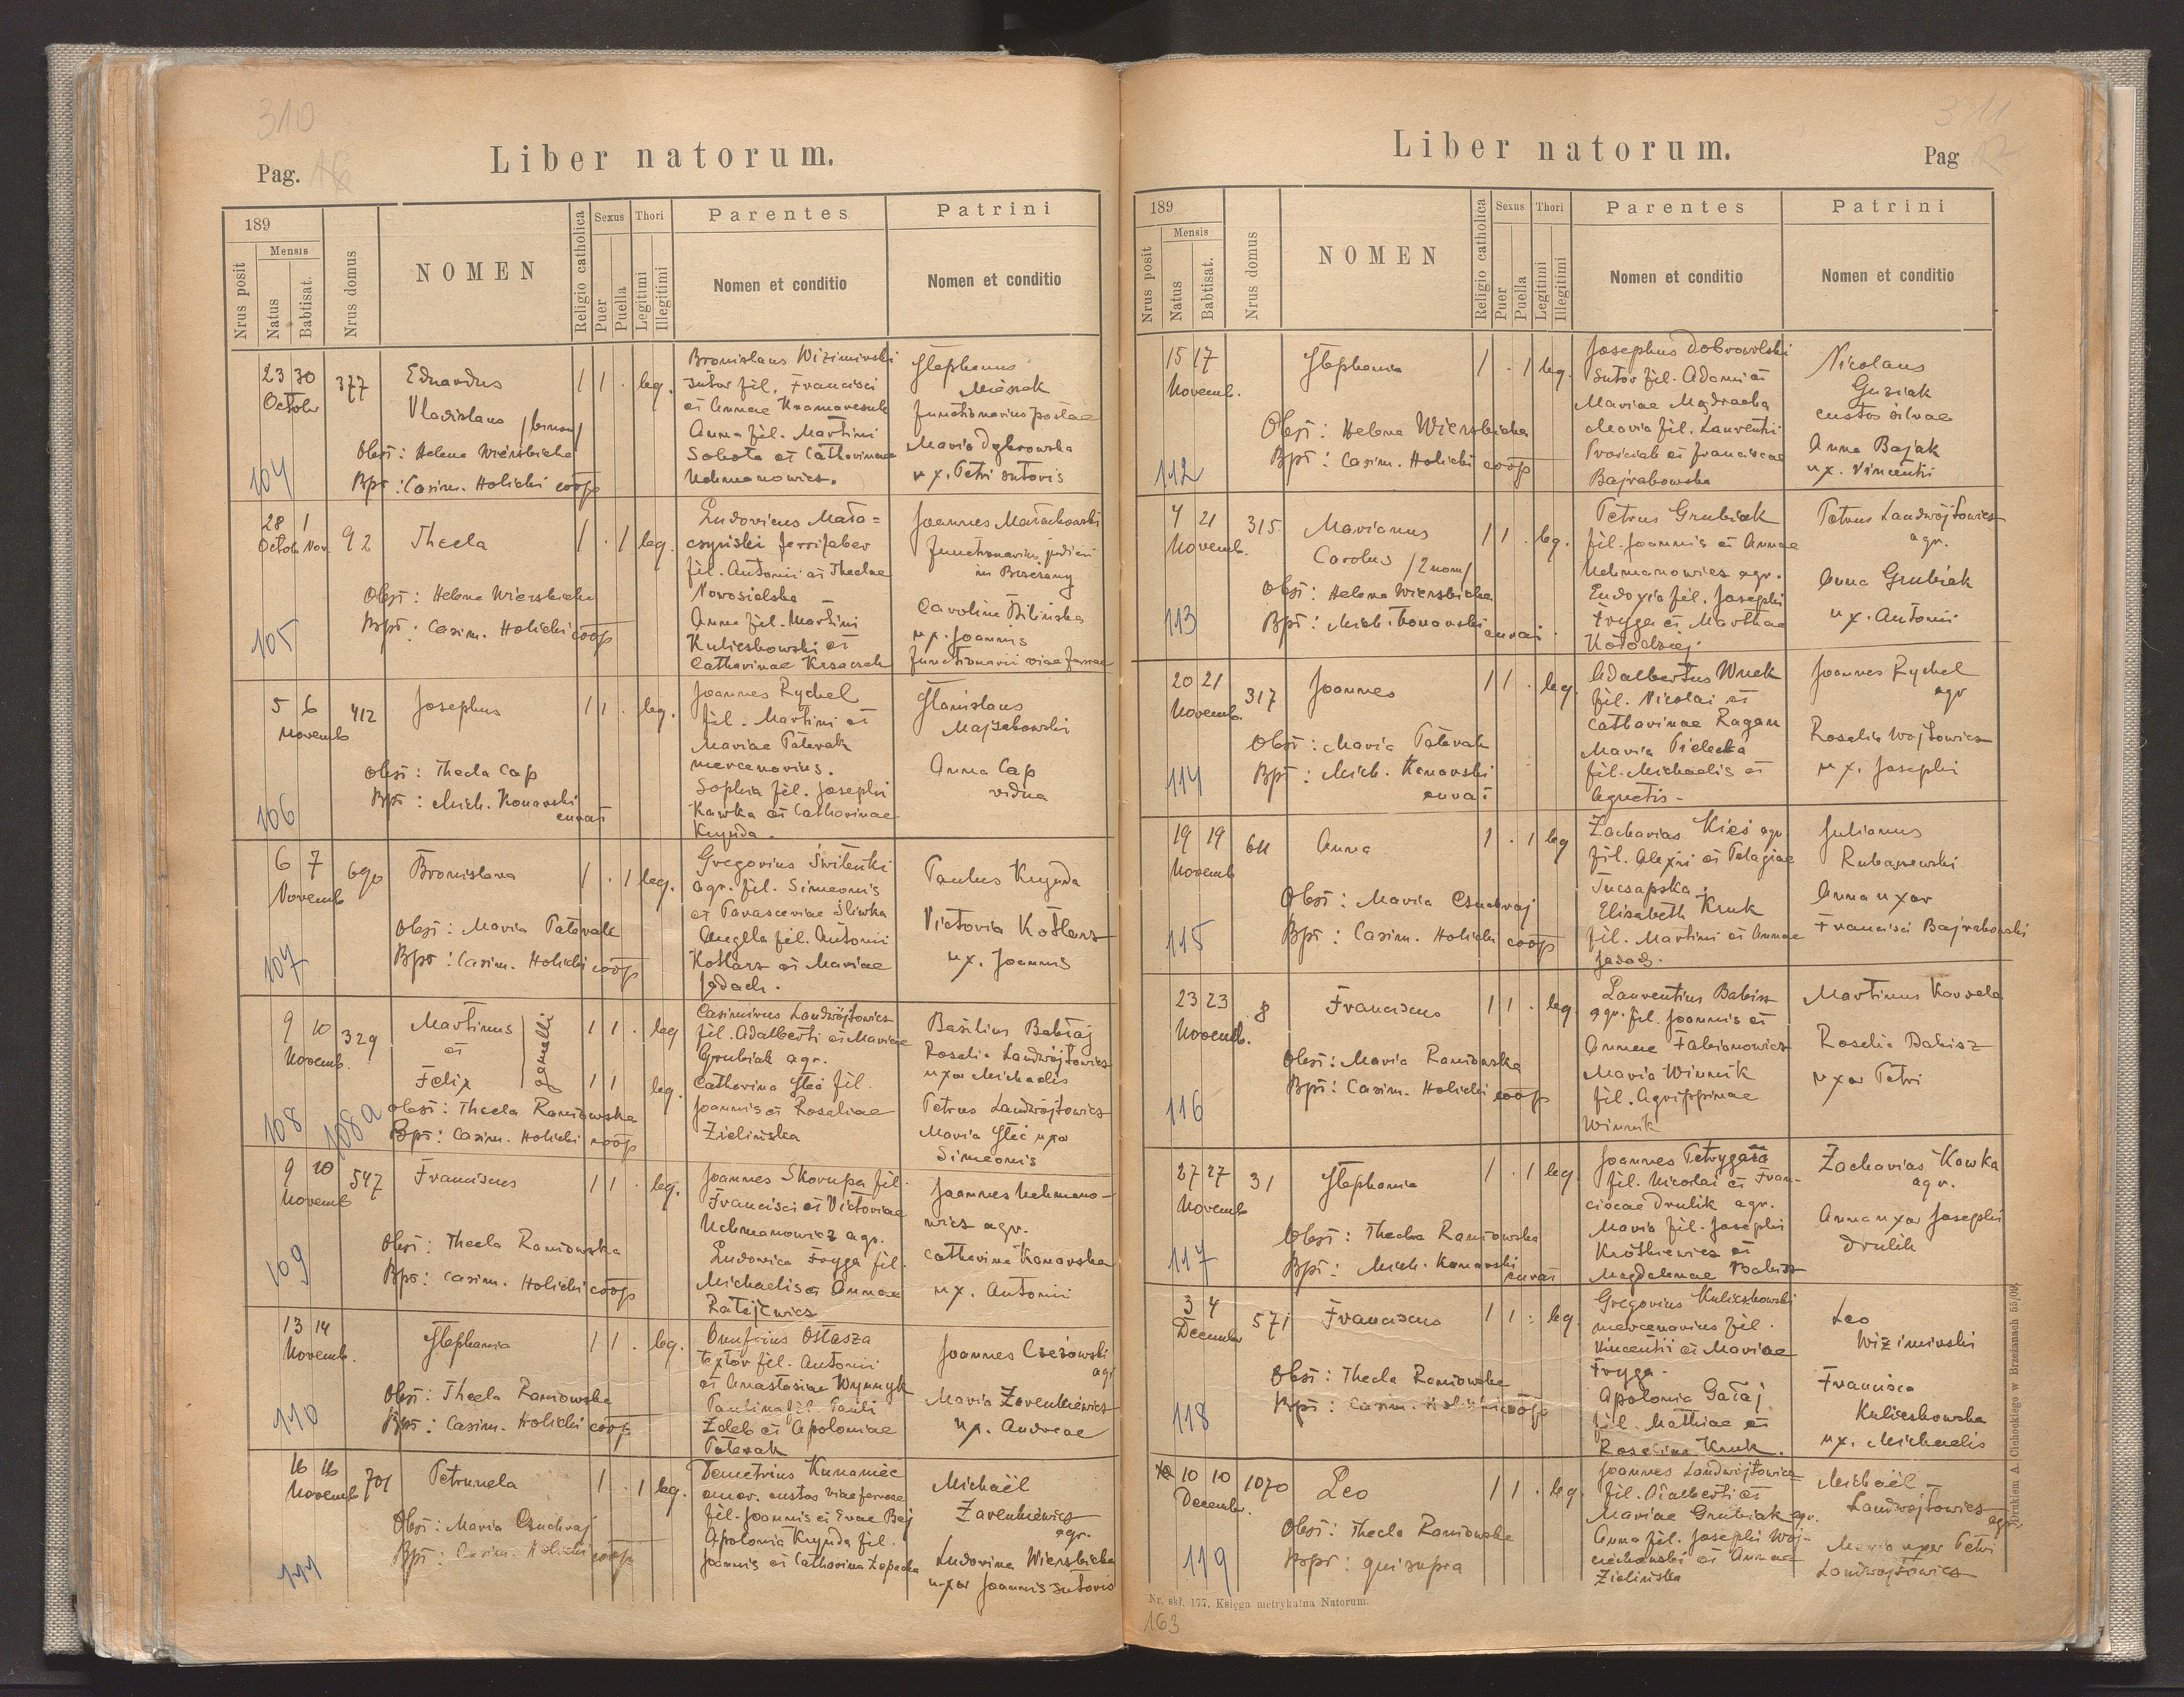 310
Pag.
Liber natorum.
189
Nrus posit
Mensis
Natus
Babtisat.
Nrus domus
NOMEN
Religio catholica
Sexus
Puer
Puella
Thori
Legitimi
Illegitimi
Parentes
Nomen et conditio
Patrini
Nomen et conditio
23 30
Octobr
377
Eduardus
Vladislaus /binom/
1 1 . leg.
Obst: Helena Wierzbicka
Bpt: Casim. Holicki coop
104
Bronislaus Wizimirski
sutor fil. Francisci
et Annae
Anna fil. Martini
Sobota et Catharinae
Uchmanowicz.
Stephanus
functionarius postae
Maria Dąbrowska
ux. Petri sutoris
28 1
Octob Nov.
92
Thecla
1 . 1 leg.
Obst: Helena Wierzbicka
Bpt: Casim. Holicki coop
105
Ludovicus Mała=
czyński ferrifaber
fil. Antonii et Theclae
Nowosielska
Anna fil. Martini
Kuliczkowski et
Catharinae
Joannes Małachowski
functionarius judicii
in Brzeżany
Carolina Bilińska
ux. Joannis
functionarii viae ferreae
5 6
Novemb
412
Josephus
1 1 . leg.
Obst: Thecla Cap
Bpt: Mich. Konarski
curat
106
Joannes Rychel
fil. Martini et
Mariae Paterak
mercenarius.
Sophia fil. Josephi
Kawka et Catharinae
Krynda.
Stanislaus
Majzakowski
Anna Cap
vidua
6 7
Novemb
690
Bronislava
1 . 1 leg.
Obst: Maria Paterak
Bpt: Casim. Holicki coop
107
Gregorius Świteńki
agr. fil. Simeonis
et Parasceviae Śliwka
Angela fil. Antonii
Kotlarz et Mariae
Jadach.
Paulus Krynda
Victoria Kotlarz
ux. Joannis
9 10
Novemb.
329
Martinus
et
Felix
gemelli
1 1 . leg
1 1 leg.
Obst: Thecla Raniowska
Bpt: Casim. Holicki coop
108 108a
Casimirus Landwójtowicz
fil. Adalberti et Mariae
Grubiak agr.
Catharina Steć fil.
Joannis et Rosaliae
Zielińska
Basilius Babiaj
Rosalia Landwójtowicz
uxor Michaelis
Petrus Landwójtowicz
Maria Steć uxor
Simeonis
9 10
Novemb
547
Franciscus
1 1 . leg.
Obst: Thecla Raniowska
Bpt: Casim. Holicki coop
109
Joannes Skorupa fil.
Francisci et Victoriae
Uchmanowicz agr.
Ludovica Fryga fil.
Michaelis et Annae
Ratajewicz
Joannes Uchmano-
wicz agr.
Catharina Konarska
ux. Antonii
13 14
Novemb.
Stephania
1 1 . leg.
Obst: Thecla Raniowska
Bpt: Casim. Holicki coop
110
Onufrius Ostasza
textor fil. Antonii
et Anastasiae Wynnyk
Paulina fil. Pauli
Zdeb et Apoloniae
Paterak
Joannes Czeżowski
agr
Maria Zarenkiewicz
ux. Andreae
16 16
Novemb
701
Petrunela
1 . 1 leg.
Obst: Maria Czuchraj
Bpt: Casim. Holicki coop
111
Demetrius Kunaniec
custos viae ferreae
fil. Joannis et Evae Baj
Apolonia Krynda fil.
Joannis et Catharina
Michaël
Zarenkiewicz
agr.
Ludovina Wierzbicka
uxor Joannis sutoris
311
Liber natorum.
Pag
189
Nrus posit
Mensis
Natus
Babtisat.
Nrus domus
NOMEN
Religio catholica
Sexus
Puer
Puella
Thori
Legitimi
Illegitimi
Parentes
Nomen et conditio
Patrini
Nomen et conditio
15 17
Novemb.
Stephania
1 . 1 leg.
Obst: Helena Wierzbicka
Bpt: Casim. Holicki coop
112
Josephus Dobrowolski
sutor fil. Adami et
Mariae
Maria fil. Laurentii
et Franciscae
Bajrakowska
Nicolaus
Guziak
custos silvae
Anna Bajak
ux. Vincentii
4 21
Novemb.
315
Marianus
Carolus /2 nom/
1 1 . leg.
Obst: Helena Wierzbicka
Bpt: Mich. Konarski curat.
113
Petrus Grubiak
fil. Joannis et Annae
Uchmanowicz agr.
Eudoxia fil. Josephi
Fryga et Marthae
Kołodziej.
Petrus Landwójtowicz
agr.
Anna Grubiak
ux. Antonii
20 21
Novemb.
317
Joannes
1 1 . leg.
Obst: Maria Paterak
Bpt: Mich. Konarski
curat
114
Adalbertus Wnek
fil. Nicolai et
Catharinae Ragan
Maria Pielecka
fil. Michaelis et
Agnetis -
Joannes Rychel
agr
Rosalia Wojtowicz
ux. Josephi
19 19
Novemb
611
Anna
1 . 1 leg
Obst: Maria Czuchraj
Bpt: Casim. Holicki coop
115
Zacharias Kieś agr
fil. Alexii et Pelagiae
Tucsapska.
Elisabeth Kruk
fil. Martini et Annae
Jadach.
Julianus
Rubaszewski
Anna uxor
Francisci Bajrakowski
23 23
Novemb.
8
Franciscus
1 1 . leg.
Obst: Maria Raniowska
Bpt: Casim. Holicki coop
116
Laurentius Babisz
agr. fil. Joannis et
Annae Fabianowicz
Maria Winnik
fil. Agrippinae
Winnik
Martinus Kawela
Rosalia Babisz
uxor Petri
27 27
Novemb
31
Stephania
1 . 1 leg.
Obst: Thecla Raniowska
Bpt: Mich. Konarski
curat
117
Joannes Petrygała
fil. Nicolai et Fran-
ciscae Drulik agr.
Maria fil. Josephi
Krótkiewicz et
Magdalenae Babisz
Zacharias Kawka
agr.
Anna uxor Josephi
Drulik
3 4
Decembr
571
Franciscus
1 1 . leg.
Obst: Thecla Raniowska
Bpt: Casim. Holicki coop
118
Gregorius Kuliczkowski
mercenarius fil.
Vincentii et Mariae
Fryga.
Apolonia Gałaj
fil. Mathiae et
Rosaliae Kruk.
Leo
Wizimirski
Francisca
Kuliczkowska
ux. Michaelis
10 10
Decembr.
1070
Leo
1 1 . leg.
Obst: Thecla Raniowska
Bpt: qui supra
119
Joannes Landwójtowicz
fil. Adalberti et
Mariae Grubiak agr.
Anna fil. Josephi Woj-
ciechowski et Annae
Zielińska
Michaël
Landwójtowicz
agr.
Maria uxor Petri
Landwójtowicz
Nr. skł. 177. Księga metrykalna Natorum.
163
Drukiem A. Cichockiego w Brzeżanach 55/09.